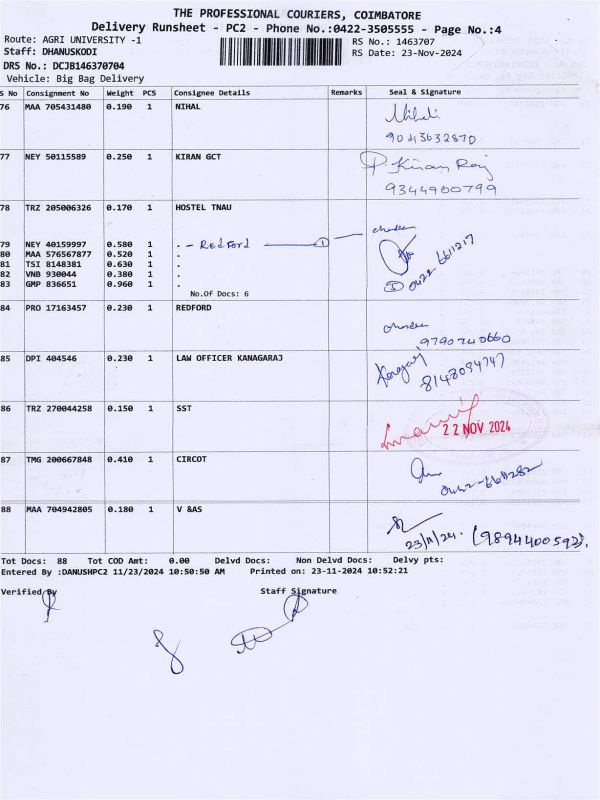 THE PROFESSIONAL COURIERS, COIMBATORE
Delivery Runsheet - PC2 - Phone No.:0422-3505555 - Page No.:4
Route: AGRI UNIVERSITY -1 RS No.: 1463707
Staff: DHANUSKODI RS Date: 23-Nov-2024
DRS No.: DCJB146370704
Vehicle: Big Bag Delivery
S No Consignment No Weight PCS Consignee Details Remarks Seal & Signature
76 MAA 705431480 0.190 1 NIHAL
9043632870
77 NEY 50115589 0.250 1 KIRAN GCT P. Kiran Raj
9344900799
78 TRZ 205006326 0.170 1 HOSTEL TNAU
79 NEY 40159997 0.580 1 . - Redford 1
80 MAA 576567877 0.520 1 .
81 TSI 8148381 0.630 1 .
82 VNB 930044 0.380 1 .
83 GMP 836651 0.960 1 .
0422-6611217
No.Of Docs: 6
84 PRO 17163457 0.230 1 REDFORD
9790740660
85 DPI 404546 0.230 1 LAW OFFICER KANAGARAJ
8148094747
86 TRZ 270044258 0.150 1 SST
22 NOV 2024
87 TMG 200667848 0.410 1 CIRCOT
88 MAA 704942805 0.180 1 V &AS
23/11/24. (9894400592).
Tot Docs: 88 Tot COD Amt: 0.00 Delvd Docs: Non Delvd Docs: Delvy pts:
Entered By :DANUSHPC2 11/23/2024 10:50:50 AM Printed on: 23-11-2024 10:52:21
Verified By Staff Signature